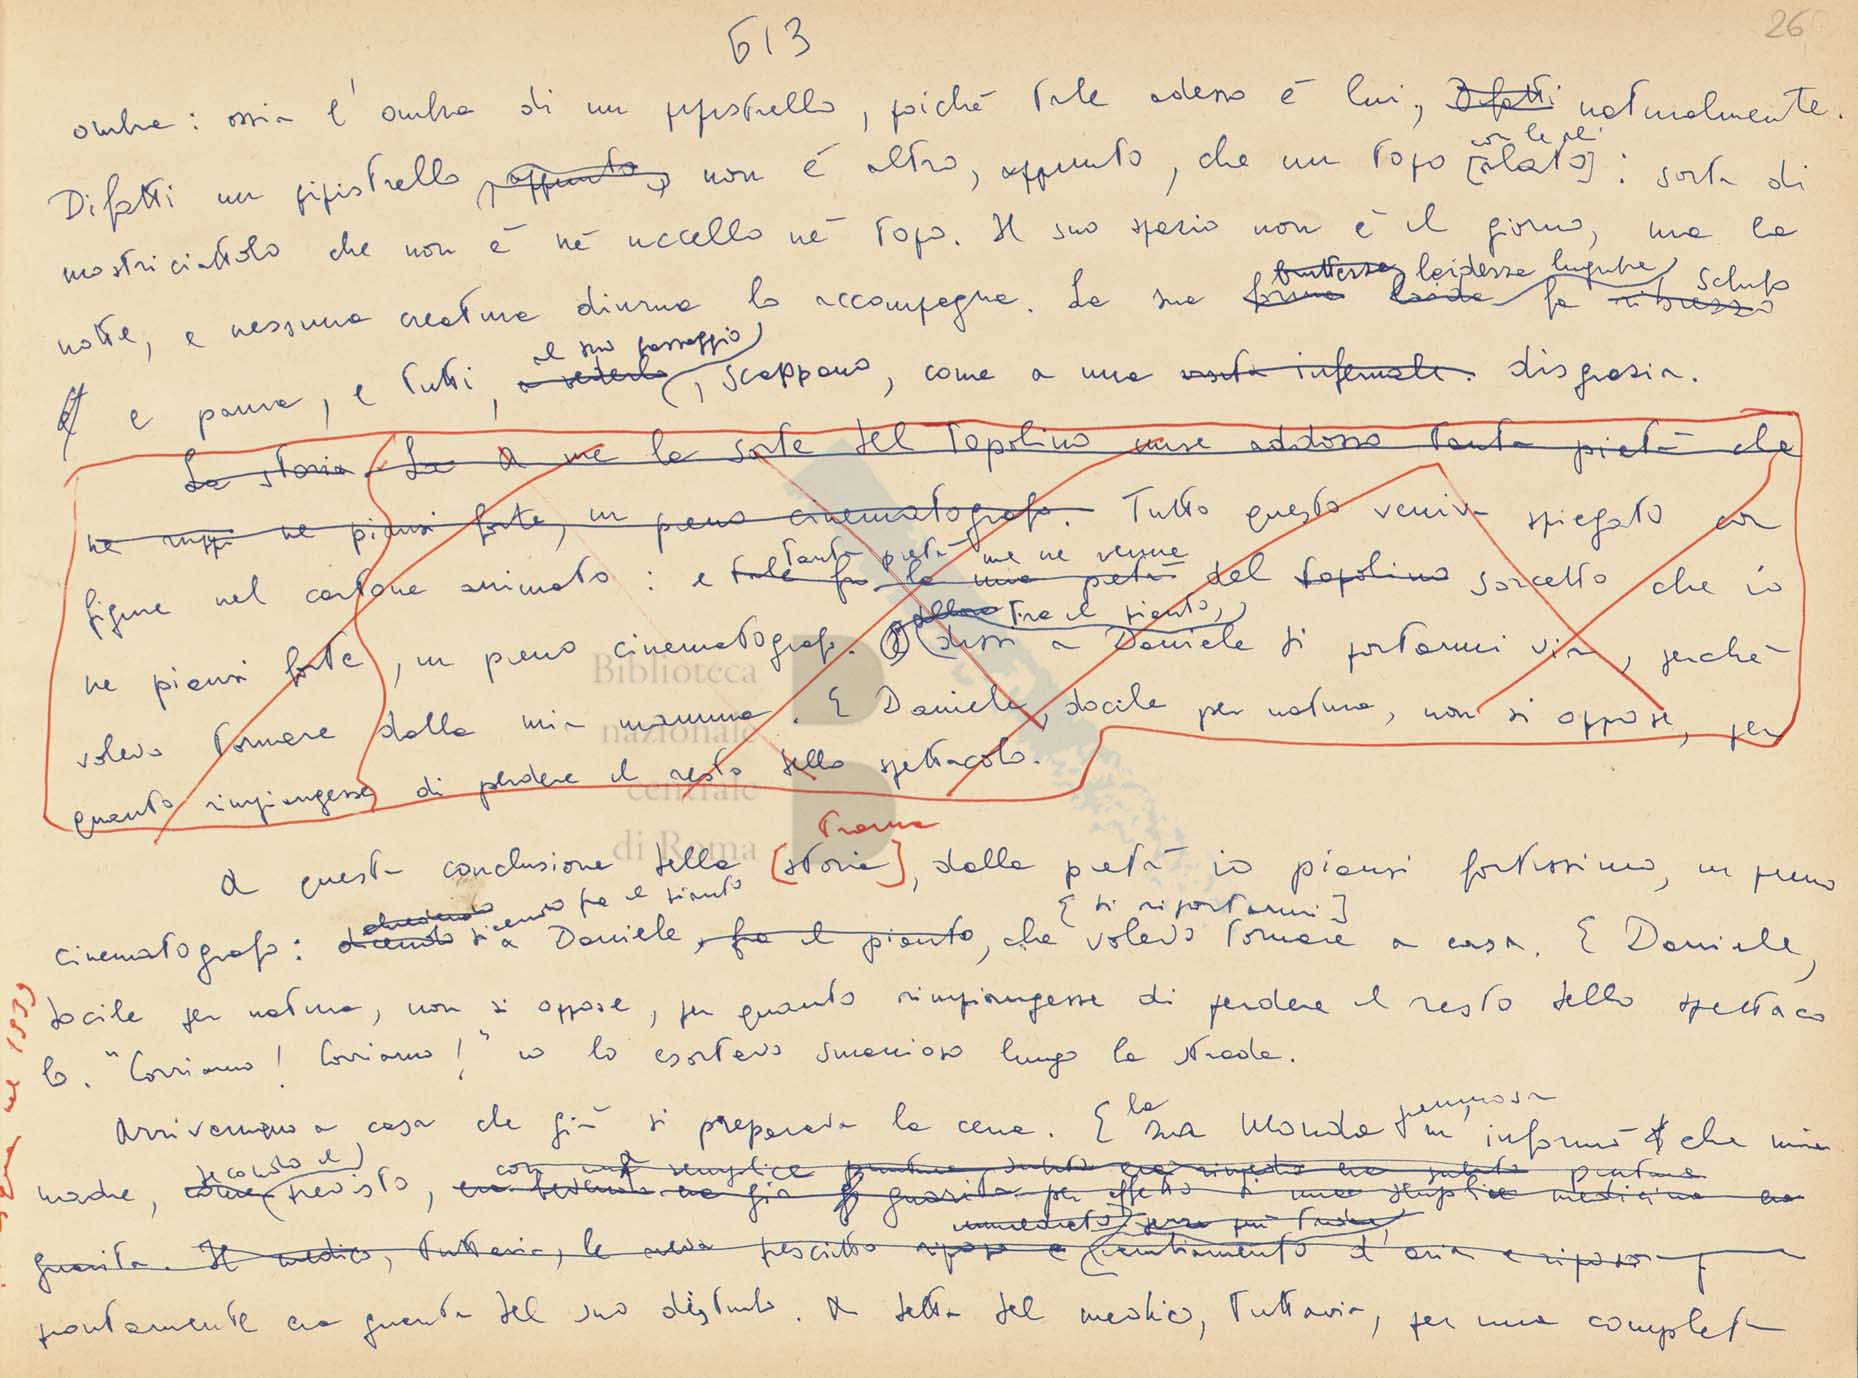 613
26
ombra: ossia l'ombra di un pipistrello, poiché tale adesso è lui, Difatti naturalmente.
con le ali
Difatti un pipistrello, appunto, non è altro, appunto, che un topo [alato]: sorta di
mostriciattolo che non è né uccello né topo. Il suo spazio non è il giorno, ma la
bruttezza laidezza lugubre schifo
notte, e nessuna creatura diurna lo accompagna. La sua forma laida fa ribrezzo
al suo passaggio
e paura, e tutti, a vederlo, scappano, come a una infernale. disgrazia.
La storia. La A me la sorte del topolino mise addosso tanta pietà che
ne ruppi ne piansi forte, in pieno cinematografo. Tutto questo veniva spiegato con
tanta pietà me ne venne
figure nel cartone animato: e tale fu la mia pietà del topolino sorcetto che io
allora tra il pianto,
ne piansi forte, in pieno cinematografo. dissi a Daniele di portarmi via, perché
volevo tornare dalla mia mamma. E Daniele, docile per natura, non si oppose, per
quanto rimpiangesse di perdere il resto dello spettacolo.
trama
A questa conclusione della [storia], dalla pietà io piansi fortissimo, in pieno
chiedendo dicendo fra il pianto [di riportarmi]
cinematografo: dicendo a Daniele, fra il pianto, che volevo tornare a casa. E Daniele,
docile per natura, non si oppose, per quanto rimpiangesse di perdere il resto dello spettaco
lo. "Corriamo! Corriamo!" io lo esortavo smanioso lungo la strada.
nel 1939
la premurosa
Arrivammo a casa che già si preparava la cena. E sua Monda m'informò che mia
secondo il con una semplice puntura subito puntura
madre, come previsto, era già guarita per effetto di una semplice medicina era
immediato, senza più tardare,
guarita. Il medico, tuttavia, le aveva prescritto riposo e cambiamento d'aria e riposo
prontamente era guarita del suo disturbo. A detta del medico, tuttavia, per una completa
Biblioteca
nazionale
centrale
di Roma